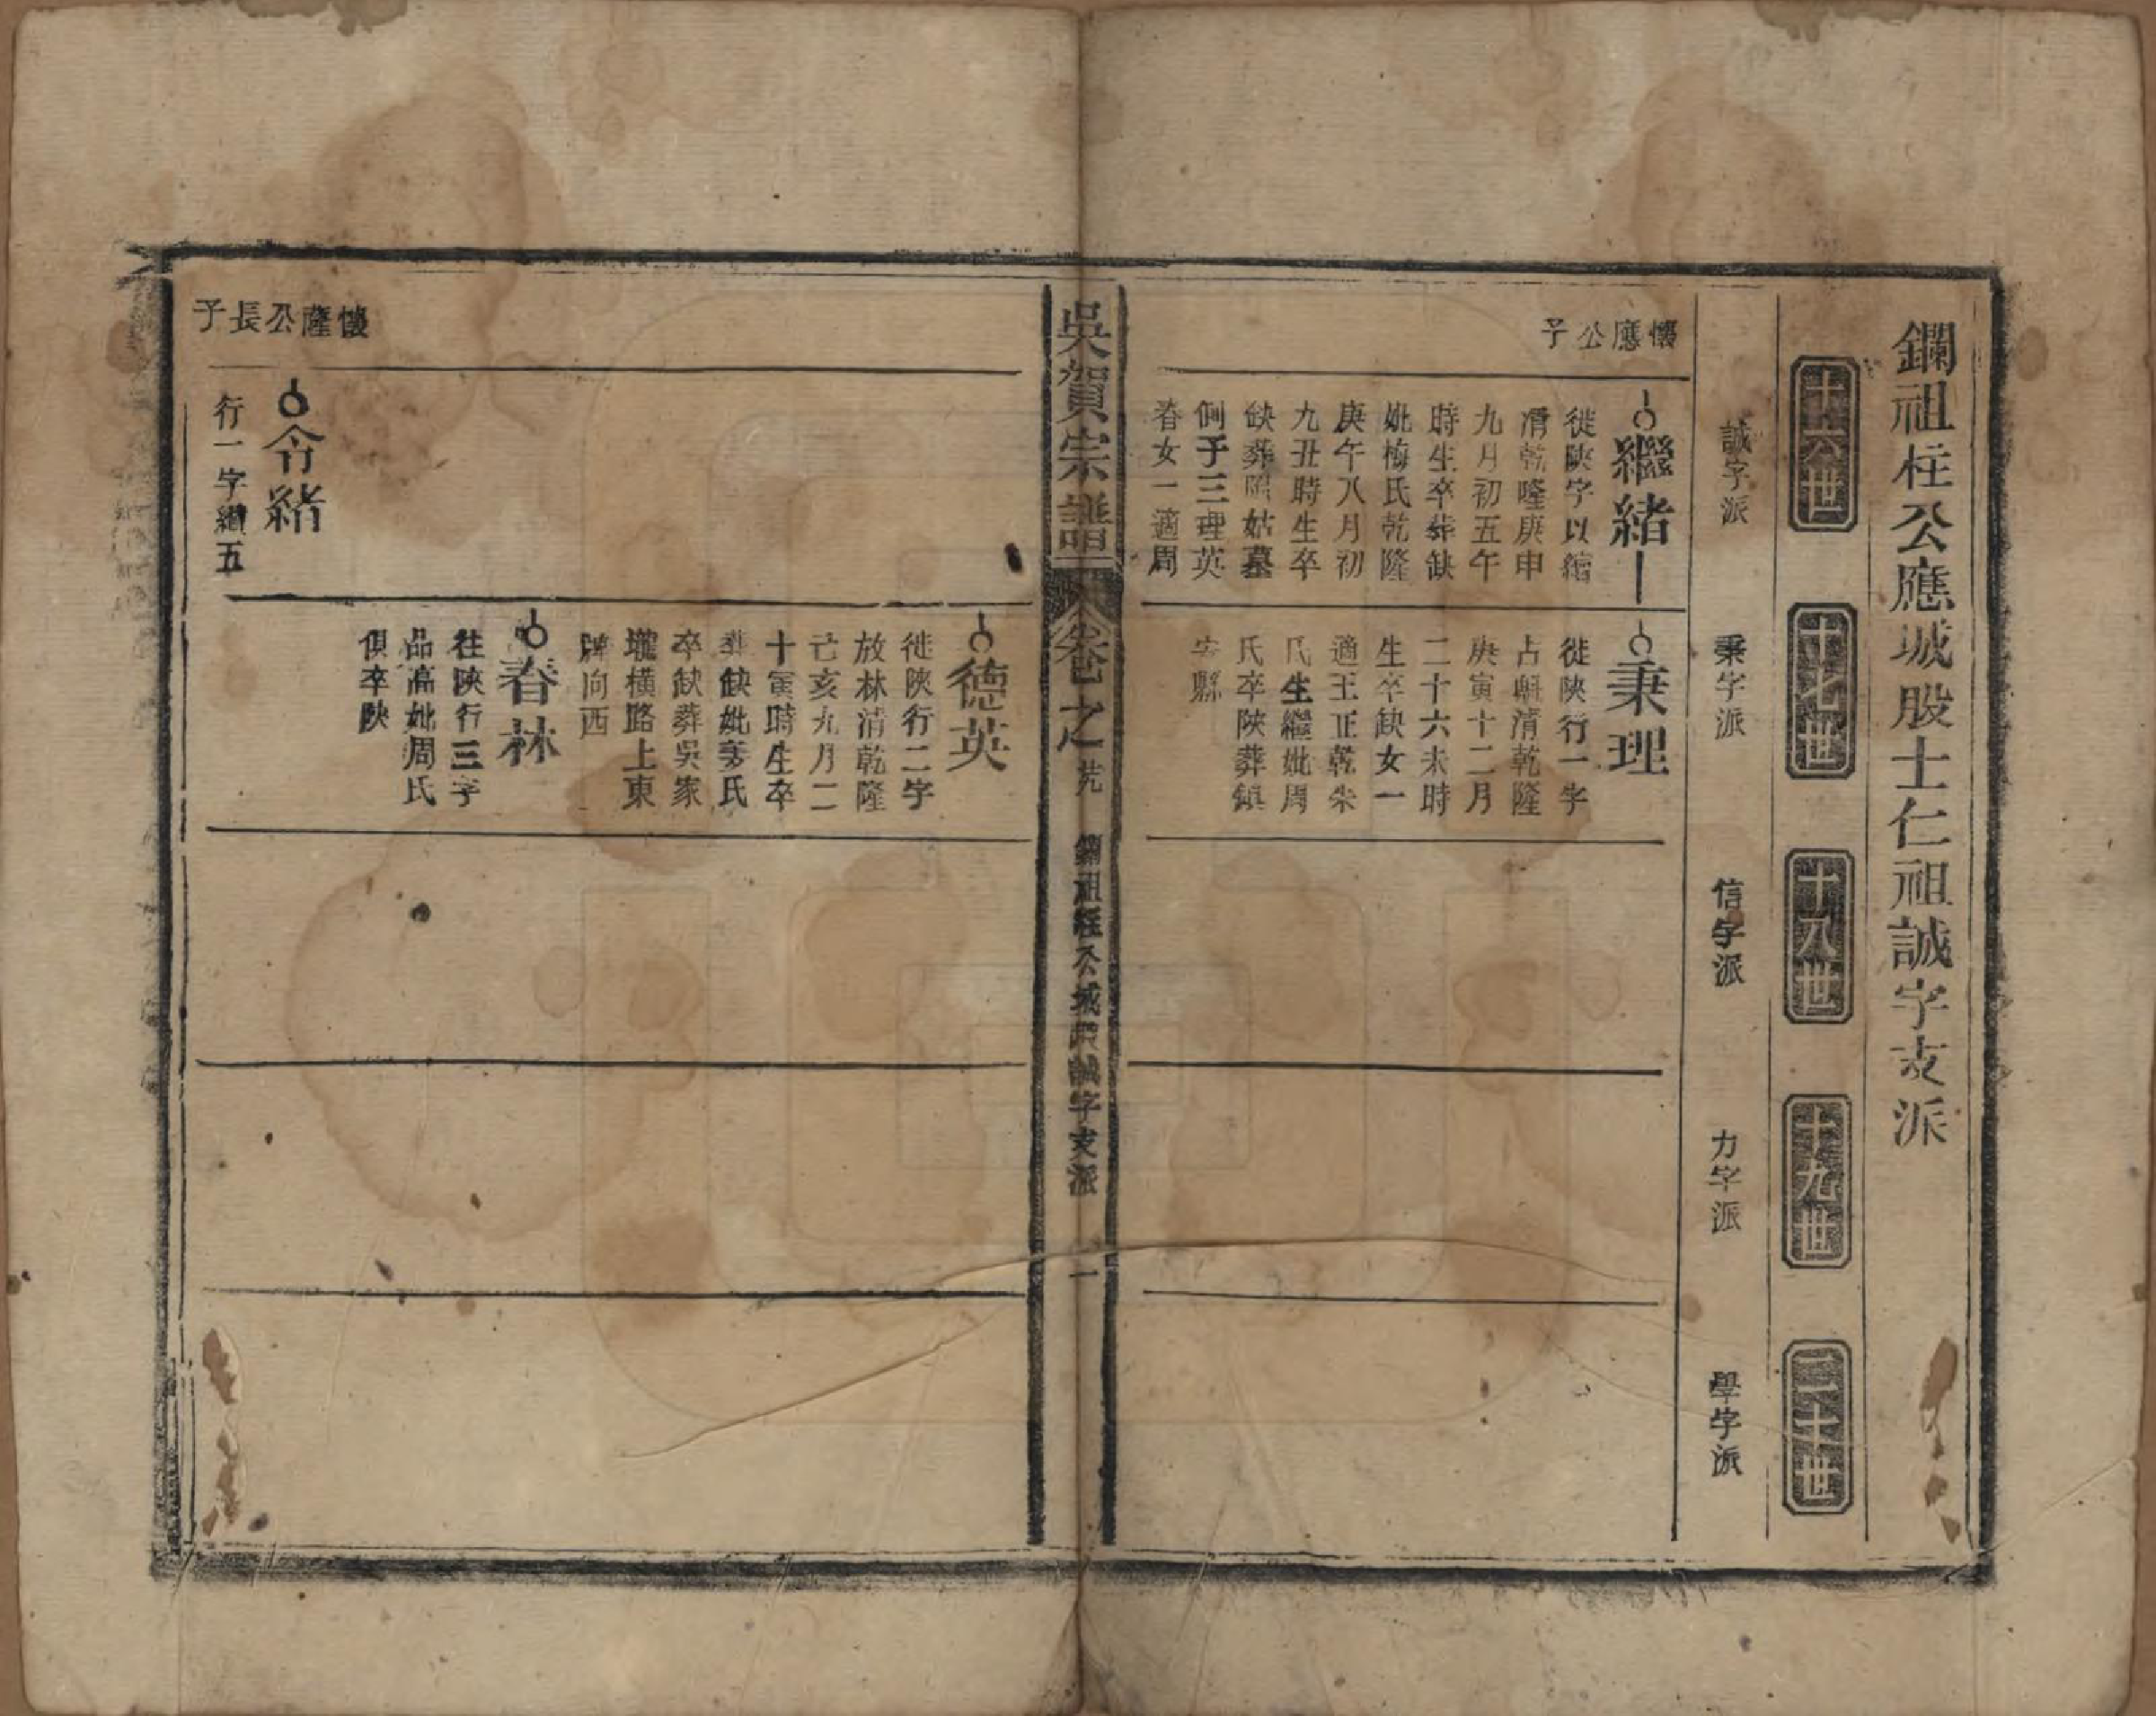 鑭祖柱公應城股士仁祖誠字支派
十六世
十七世
十八世
十九世
二十世
誠字派
秉字派
信字派
力字派
學字派
懷應公子
繼緒
徙陝字以緒
清乾隆庚申
九月初五午
時生卒葬缺
妣梅氏乾隆
庚午八月初
九丑時生卒
缺葬照姑墓
側子三理英
春女一適周
秉理
徙陝行一字
占朝清乾隆
庚寅十二月
二十六未時
生卒缺女一
適王正乾朱
氏生繼妣周
氏卒陝葬鎮
安縣
吳賀宗譜
卷之
鑭祖柱公城股誠字支派
一
德英
徙陝行二字
放林清乾隆
亥九月二
十寅時生卒
葬缺妣李氏
卒缺葬吳家
壠橫路上東
牌向西
春林
往陝行三字
品高妣周氏
俱卒陝
懷隆公長子
令緒
行一字纘五